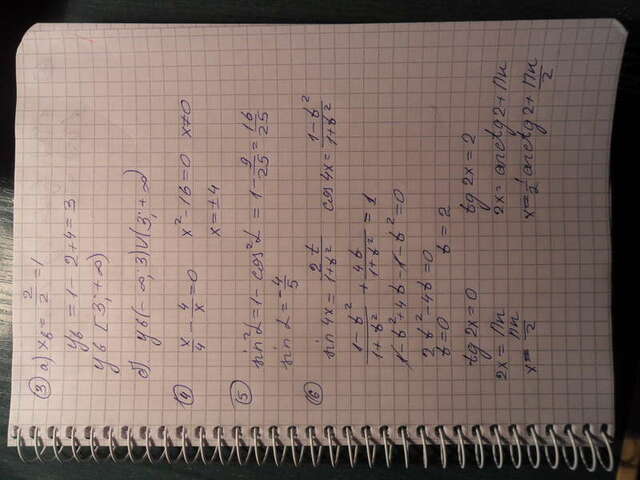 ③ а) xв = 2/2 = 1
yв = 1 - 2 + 4 = 3
yв [3; +∞)
б) yв(-∞; 3)∪(3; +∞)
④ x/4 - 4/x = 0 x² - 16 = 0 x≠0
x = ±4
⑤ sin²α = 1 - cos²α = 1 - 9/25 = 16/25
sin α = -4/5
⑥ sin 4x = 2t/(1+t²) cos 4x = (1-t²)/(1+t²)
(1-t²)/(1+t²) + 4t/(1+t²) = 1
1 - t² + 4t - 1 - t² = 0
2t² - 4t = 0
t = 0 t = 2
tg 2x = 0 tg 2x = 2
2x = Пn 2x = arctg 2 + Пn
x = Пn/2 x = 1/2 arctg 2 + Пn/2